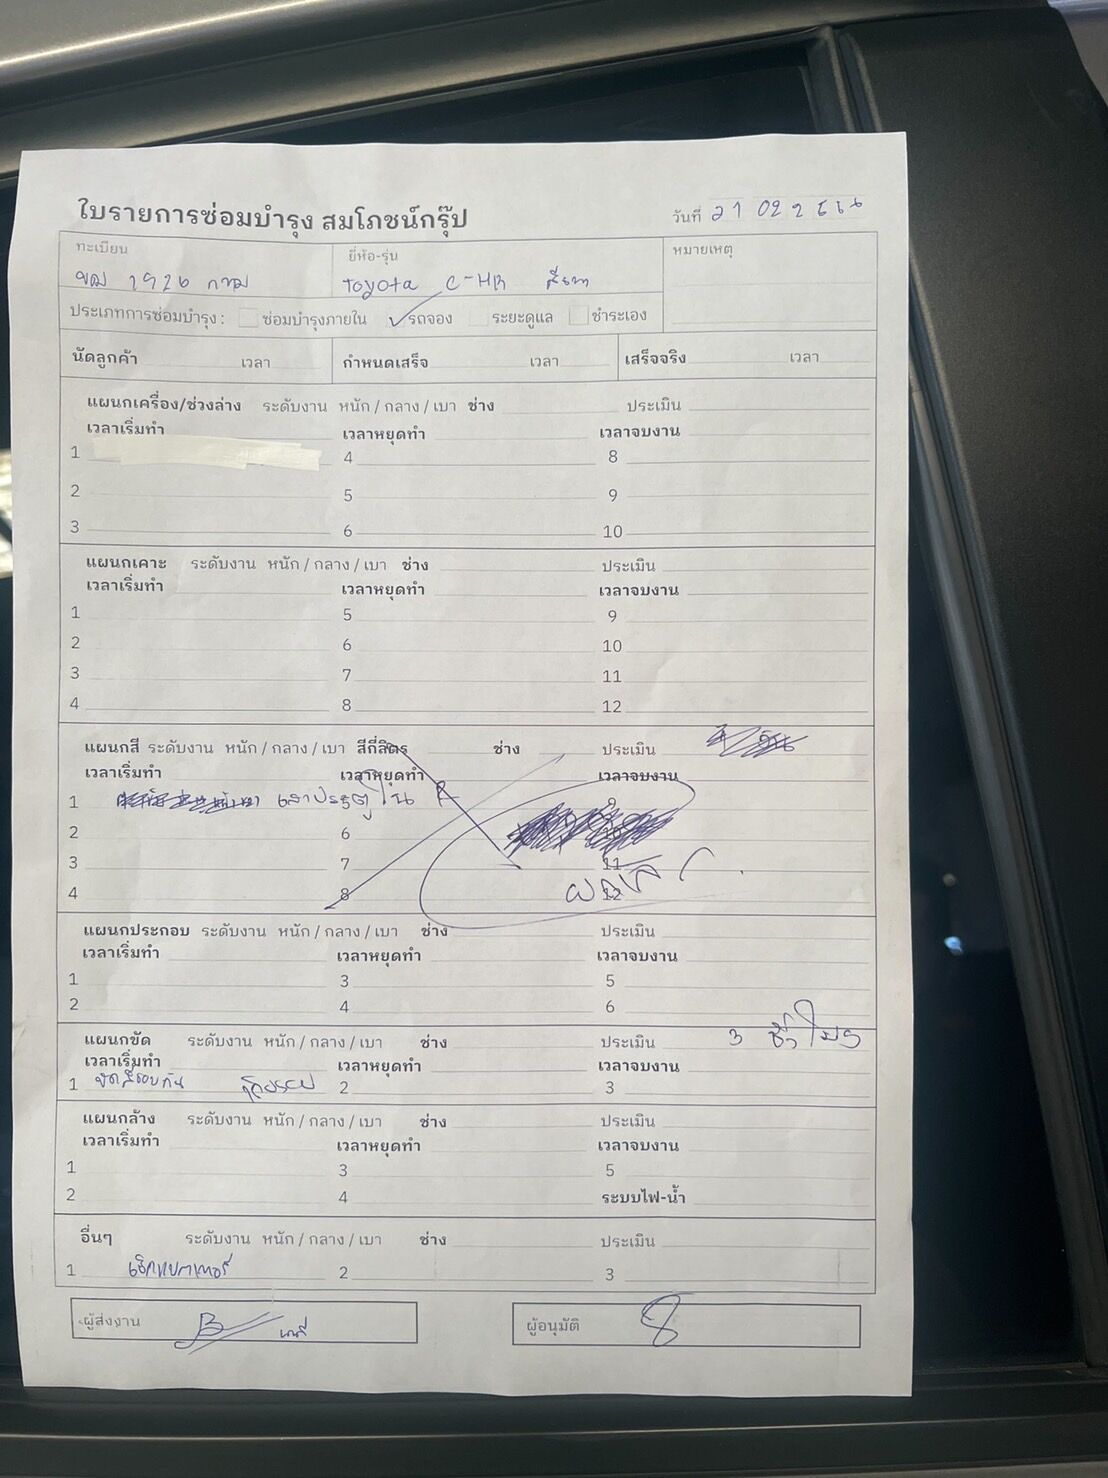 ใบรายการซ่อมบำรุง สมโภชน์กรุ๊ป
วันที่ 21 02 2
ทะเบียน ยี่ห้อ-รุ่น หมายเหตุ
1926 กทม Toyota C-HR สีเทา
ประเภทการซ่อมบำรุง : ซ่อมบำรุงภายใน รถจอง ระยะดูแล ชำระเอง
นัดลูกค้า เวลา กำหนดเสร็จ เวลา เสร็จจริง เวลา
แผนกเครื่อง/ช่วงล่าง ระดับงาน หนัก / กลาง / เบา ช่าง ประเมิน
เวลาเริ่มทำ เวลาหยุดทำ เวลาจบงาน
1 4 8
2 5 9
3 6 10
แผนกเคาะ ระดับงาน หนัก / กลาง / เบา ช่าง ประเมิน
เวลาเริ่มทำ เวลาหยุดทำ เวลาจบงาน
1 5 9
2 6 10
3 7 11
4 8 12
แผนกสี ระดับงาน หนัก / กลาง / เบา สีกี่ลิตร ช่าง ประเมิน
เวลาเริ่มทำ เวลาหยุดทำ เวลาจบงาน
1 เสาประตูใน R 9
2 6 10
3 7 11
4 8 12
แผนกประกอบ ระดับงาน หนัก / กลาง / เบา ช่าง ประเมิน
เวลาเริ่มทำ เวลาหยุดทำ เวลาจบงาน
1 3 5
2 4 6
แผนกขัด ระดับงาน หนัก / กลาง / เบา ช่าง ประเมิน 3 ชั่วโมง
เวลาเริ่มทำ เวลาหยุดทำ เวลาจบงาน
1 ขัดสีรอบคัน 2 3
แผนกล้าง ระดับงาน หนัก / กลาง / เบา ช่าง ประเมิน
เวลาเริ่มทำ เวลาหยุดทำ เวลาจบงาน
1 3 5
2 4 ระบบไฟ-น้ำ
อื่นๆ ระดับงาน หนัก / กลาง / เบา ช่าง ประเมิน
1 เช็คแบตเตอรี่ 2 3
ผู้ส่งงาน ผู้อนุมัติ